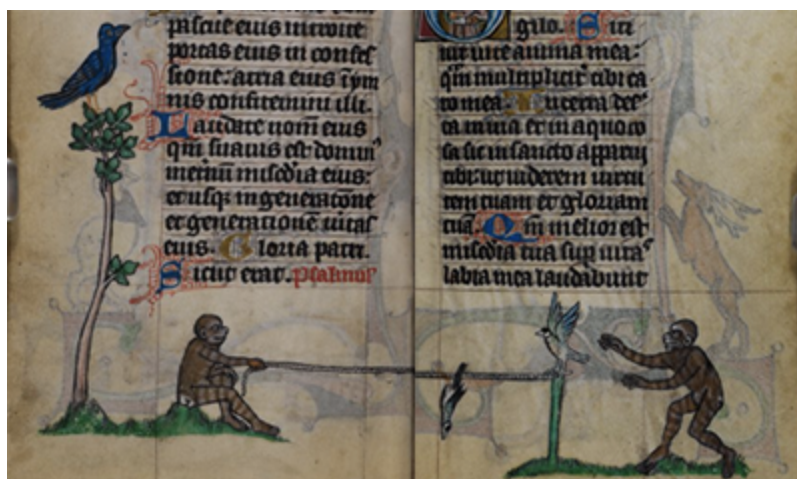 pascue eius introite
portas eius in confes
sione: atria eius ī ym
nis confitemini illi.
Laudate nom̄ eius
qm̄ suauis est domin⁹
in et̄num mis̄cdia eius:
et usq; in generatōne
et generationē ueritas
eius. Gloria patri.
Sicut erat. psalmus
gilo. Siti
uit in te anima mea:
qm̄ multiplicit̄ tibi ca
ro mea. In terra des̄
ta inuia et inaquo
sa sic in sancto apparui
tibi: ut uiderem uirtu
tem tuam et gloriam
tuā. Qm̄ melior est
mis̄cdia tua sup̄ uitas
labia mea laudabunt